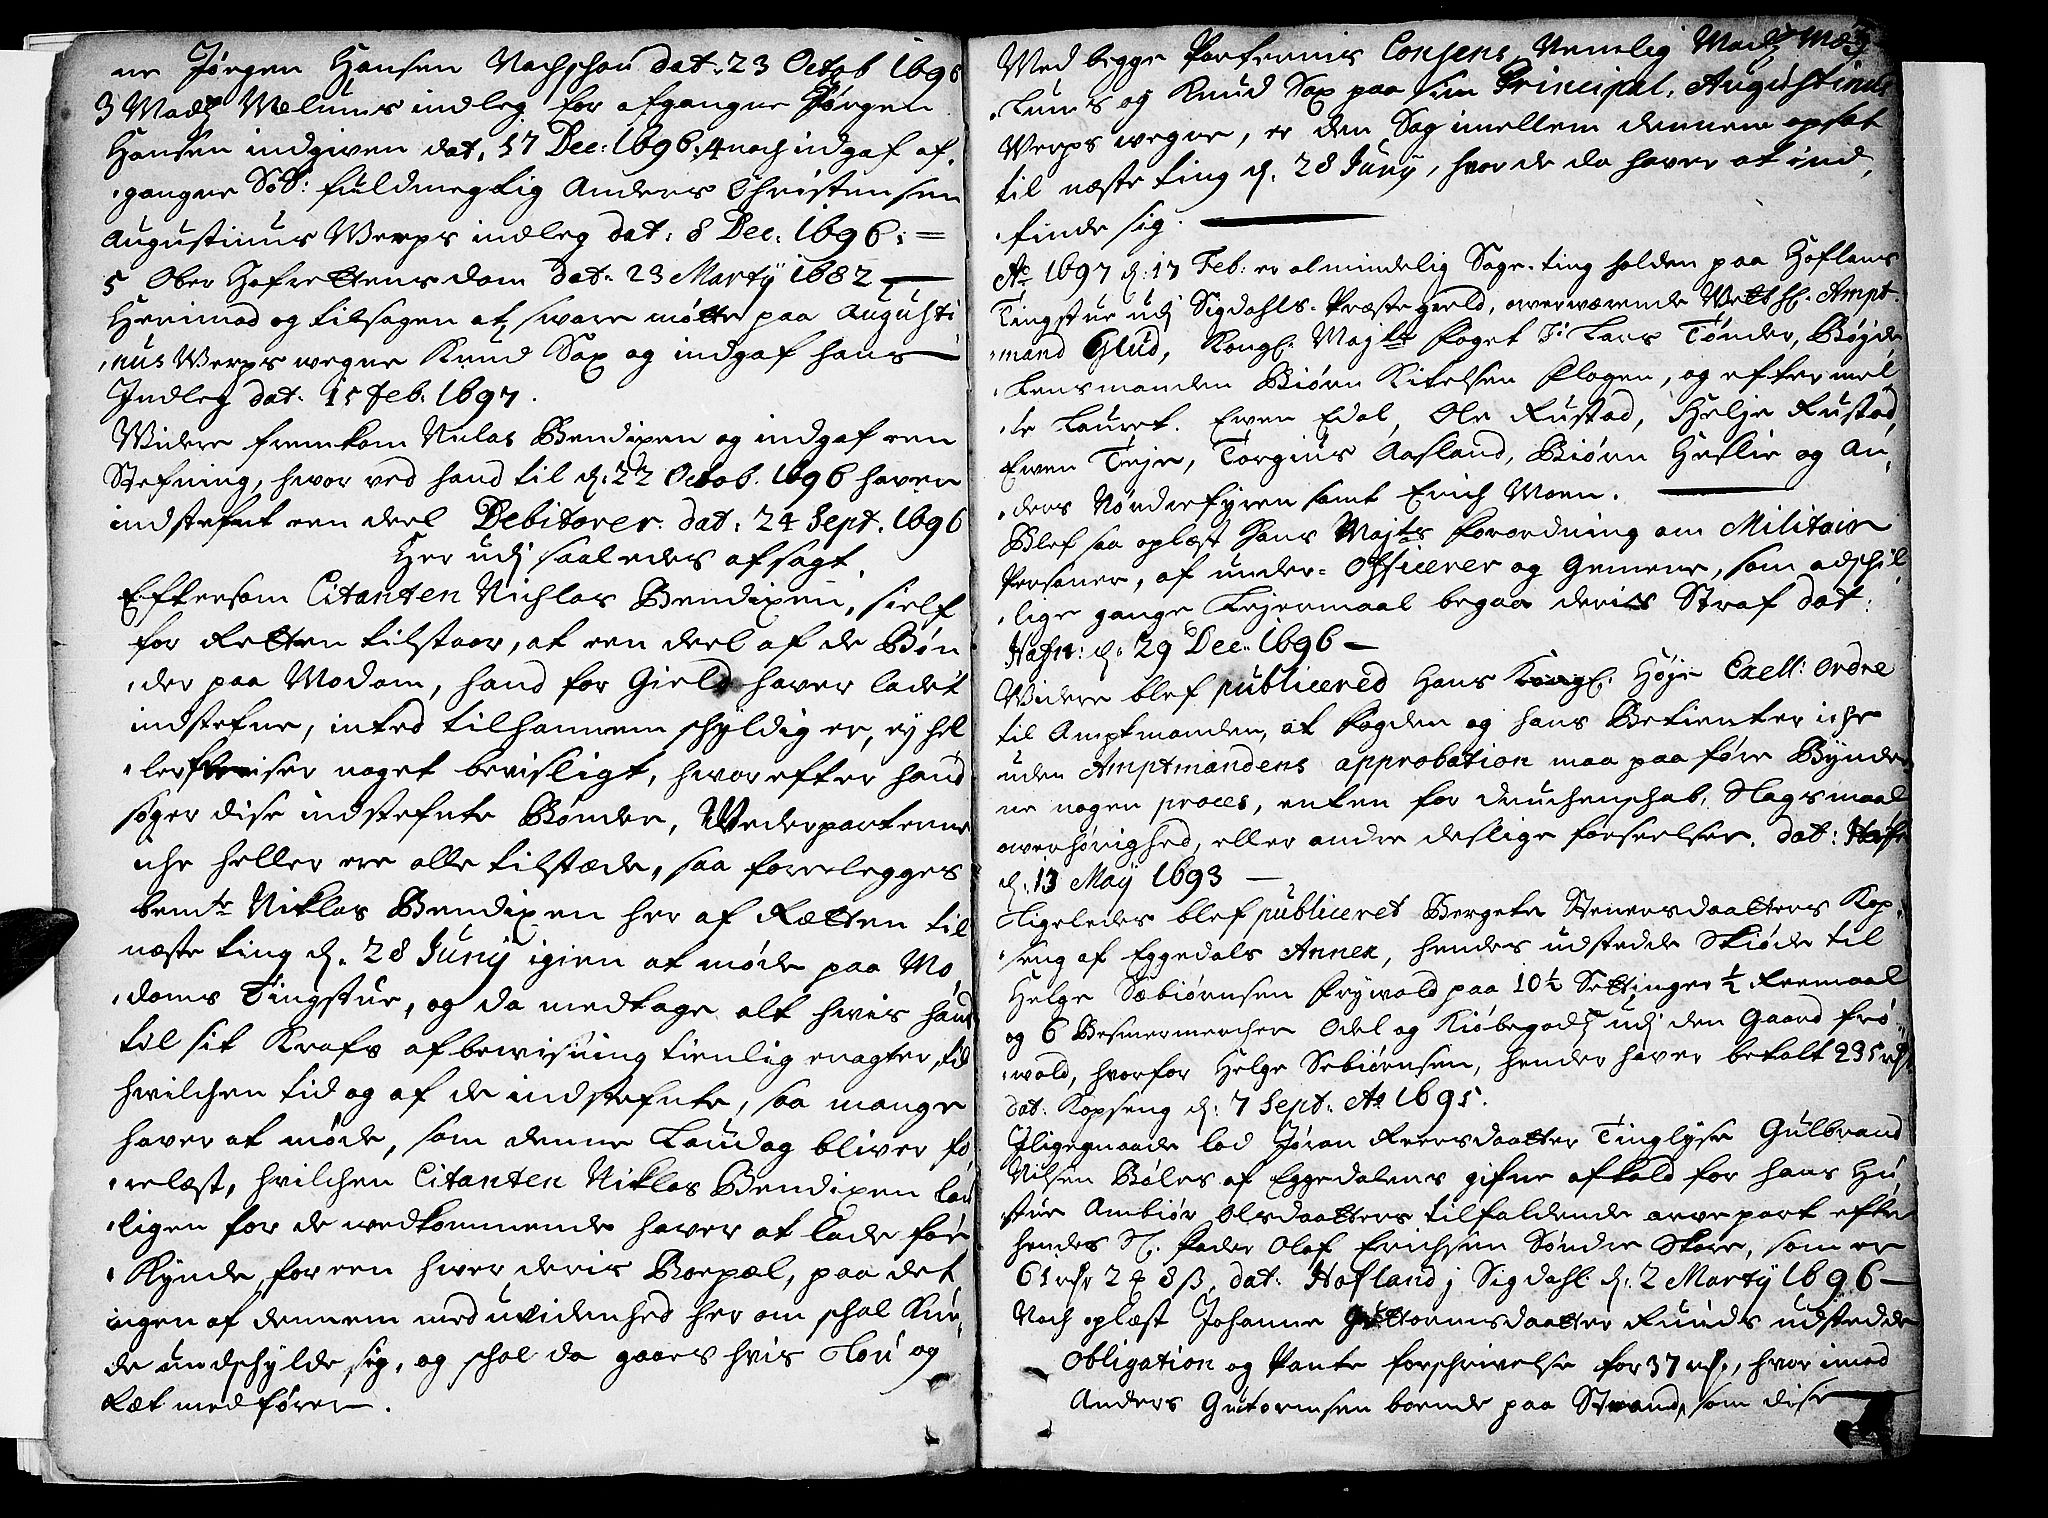 ne Jørgen Hansen Nachschou dat: 23 Octob 1696
3 Madz Mælums indleg for afgangne Jørgen
Hansen indgiven dat. 17 Dec: 1696. 4 noch indgaf af,
gangne fuldmegtig Anders Christensen
Augustinus Werps indleg dat: 8 Dec: 1696: =
5 Ober Hofrettens dom dat: 23 Martÿ 1682
Herimod og til sagen at sware møtte paa Augusti
nus Werps wegne Knud Sax og indgaf hans
Indleg dat: 15 Feb. 1697.
Widere fremkom Niclas Bendixen og indgaf een
Stefning, hwor ved hand til d: 22 Octob. 1696 hawer
indstefnt een deel Debitorer dat: 24 Sept. 1696
Her udj saaledes afsagt.
Eftersom Citanten Nichlas Bendixen, sielf
for Retten tilstaar, at een deel af de Bøn
der paa Modom, hand for Gield hawer ladet
indstefne, inted til hannem schyldig er, ey hel
ler noget bevisligt, hworefter hand
søger dise indstefnte Bønder, Wederparterne
iche heller ere alle tilstæde, saa forelegges
bemte Niklas Bendixen her af Rætten til
næste ting d. 28 Junÿ igien at møde paa Mo,
doms Tingstue, og da medtage alt hwis hand
til sit Krafs afbewisning tienlig eragter, til
hvilchen tid og af de indstefnte, saa mange
hawer at møde, som denne Laudag bliver fo
relæst, hvilchen Citanten Niklas Bendixen lou
ligen for de wedkommende hawer at lade for
Kynde, for een hwer deris Boepæl, paa det
ingen af dennem med uvidenhed her om schal Kun,
de undschylde sig, og schal da gaaes hvis Lou og
Ræt medfører.
Med begge Parternis Consens, Nemlig Madz Mæ
lums og Knud Sax paa sin Principal, Augustinus
Werps wegne, er den Sag imellem dennem opsat
til næste ting d. 28 Junÿ, hwor de da hawer at ind,
finde sig.
Ao 1697 d: 17 Feb: er almindelig Sage-ting holden paa Hoflans
Tingstue udj Sigdahls Præstegield, owerwærende Ampt-
mand Glud, Kongl: Majts Foget Lars Tønder, Bøyde
Lensmanden Biørn Kitelsen Flogen, og eftermel
te Lauret. Ewen Edal, Ole Rustad, Helje Rustad,
Ewen Teje, Torgius Aasland, Biørn Heslie og An,
ders Nørdrefyren samt Erich Moen.
Blef saa oplæst Hans Majts forordning om Militair
Personer, af under-Officerer og Gemene, som adschil
lige gange Lejermaal begaar deris Straf dat:
Hafn: d: 29 Dec. 1696
Widere blef publicered Hans Kongl. Høje Excell: ordre
til Amptmanden, at Fogden og hans Betienter iche
uden Amptmandens approbation maa paaføre Bynder
ne nogen proces, enten for druchenschab, Slagsmaal
owerhørighed, eller andre deslige forseelser. dat: Hafn
d. 13 Maÿ 1693
Ligeledes blef publiceret Bergete Stenersdaatters Kop,
seng af Eggedals Annex, hendes udstedde Skiøde til
Helge Sæbiørnsen Frywold paa 10½ Settinger ½ Remaal
og 6 Besmermercher Odel og Kiøbegodz udj den Gaard Frø
wold, hvorfor Helge Sebiørnsen, hender hawer betalt 235 rdr
dat: Kopseng d: 7 Sept. Ao 1695.
Iligegnaade lod Jøran Reersdaatter Tinglyse Gulbrand
Nilsen Bøles af Eggedalens gifne afkald for hans Hu,
strue Ambiør Olsdaatters tilfaldende arwepart efter
hendes Sl. Fader Olaf Erichsen Søndre Skare, som er
61 rdr 24 ß, dat: Hofland j Sigdahl d: 2 Martÿ 1696
Noch oplæst Johanne Guttormsdaatter Ruuds udstedde
Obligation og Pante forschrivelse for 37 rdr, hvor imod
Anders Gutormsen boende paa Strand, som dise